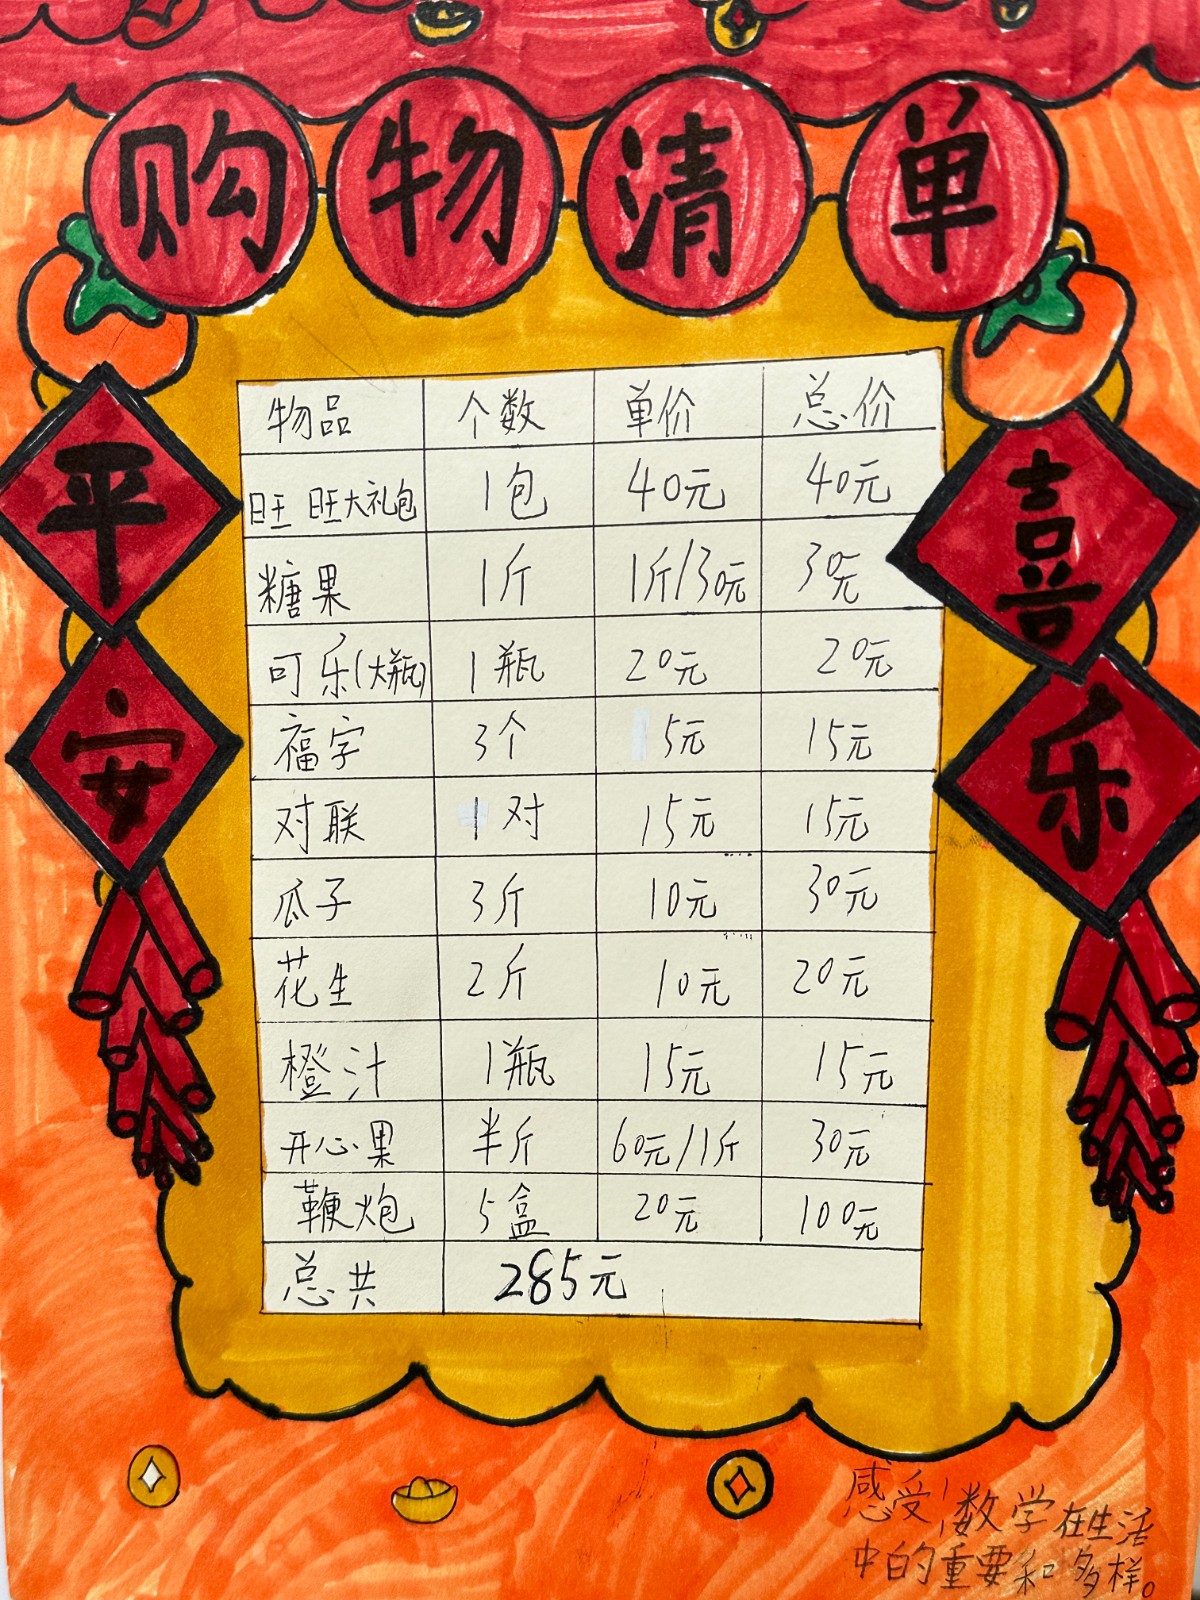 购物清单
平安
喜乐
物品 个数 单价 总价
旺旺大礼包 1包 40元 40元
糖果 1斤 1斤/30元 30元
可乐(大瓶) 1瓶 20元 20元
福字 3个 5元 15元
对联 1对 15元 15元
瓜子 3斤 10元 30元
花生 2斤 10元 20元
橙汁 1瓶 15元 15元
开心果 半斤 60元/1斤 30元
鞭炮 5盒 20元 100元
总共 285元
感受数学在生活
中的重要和多样。